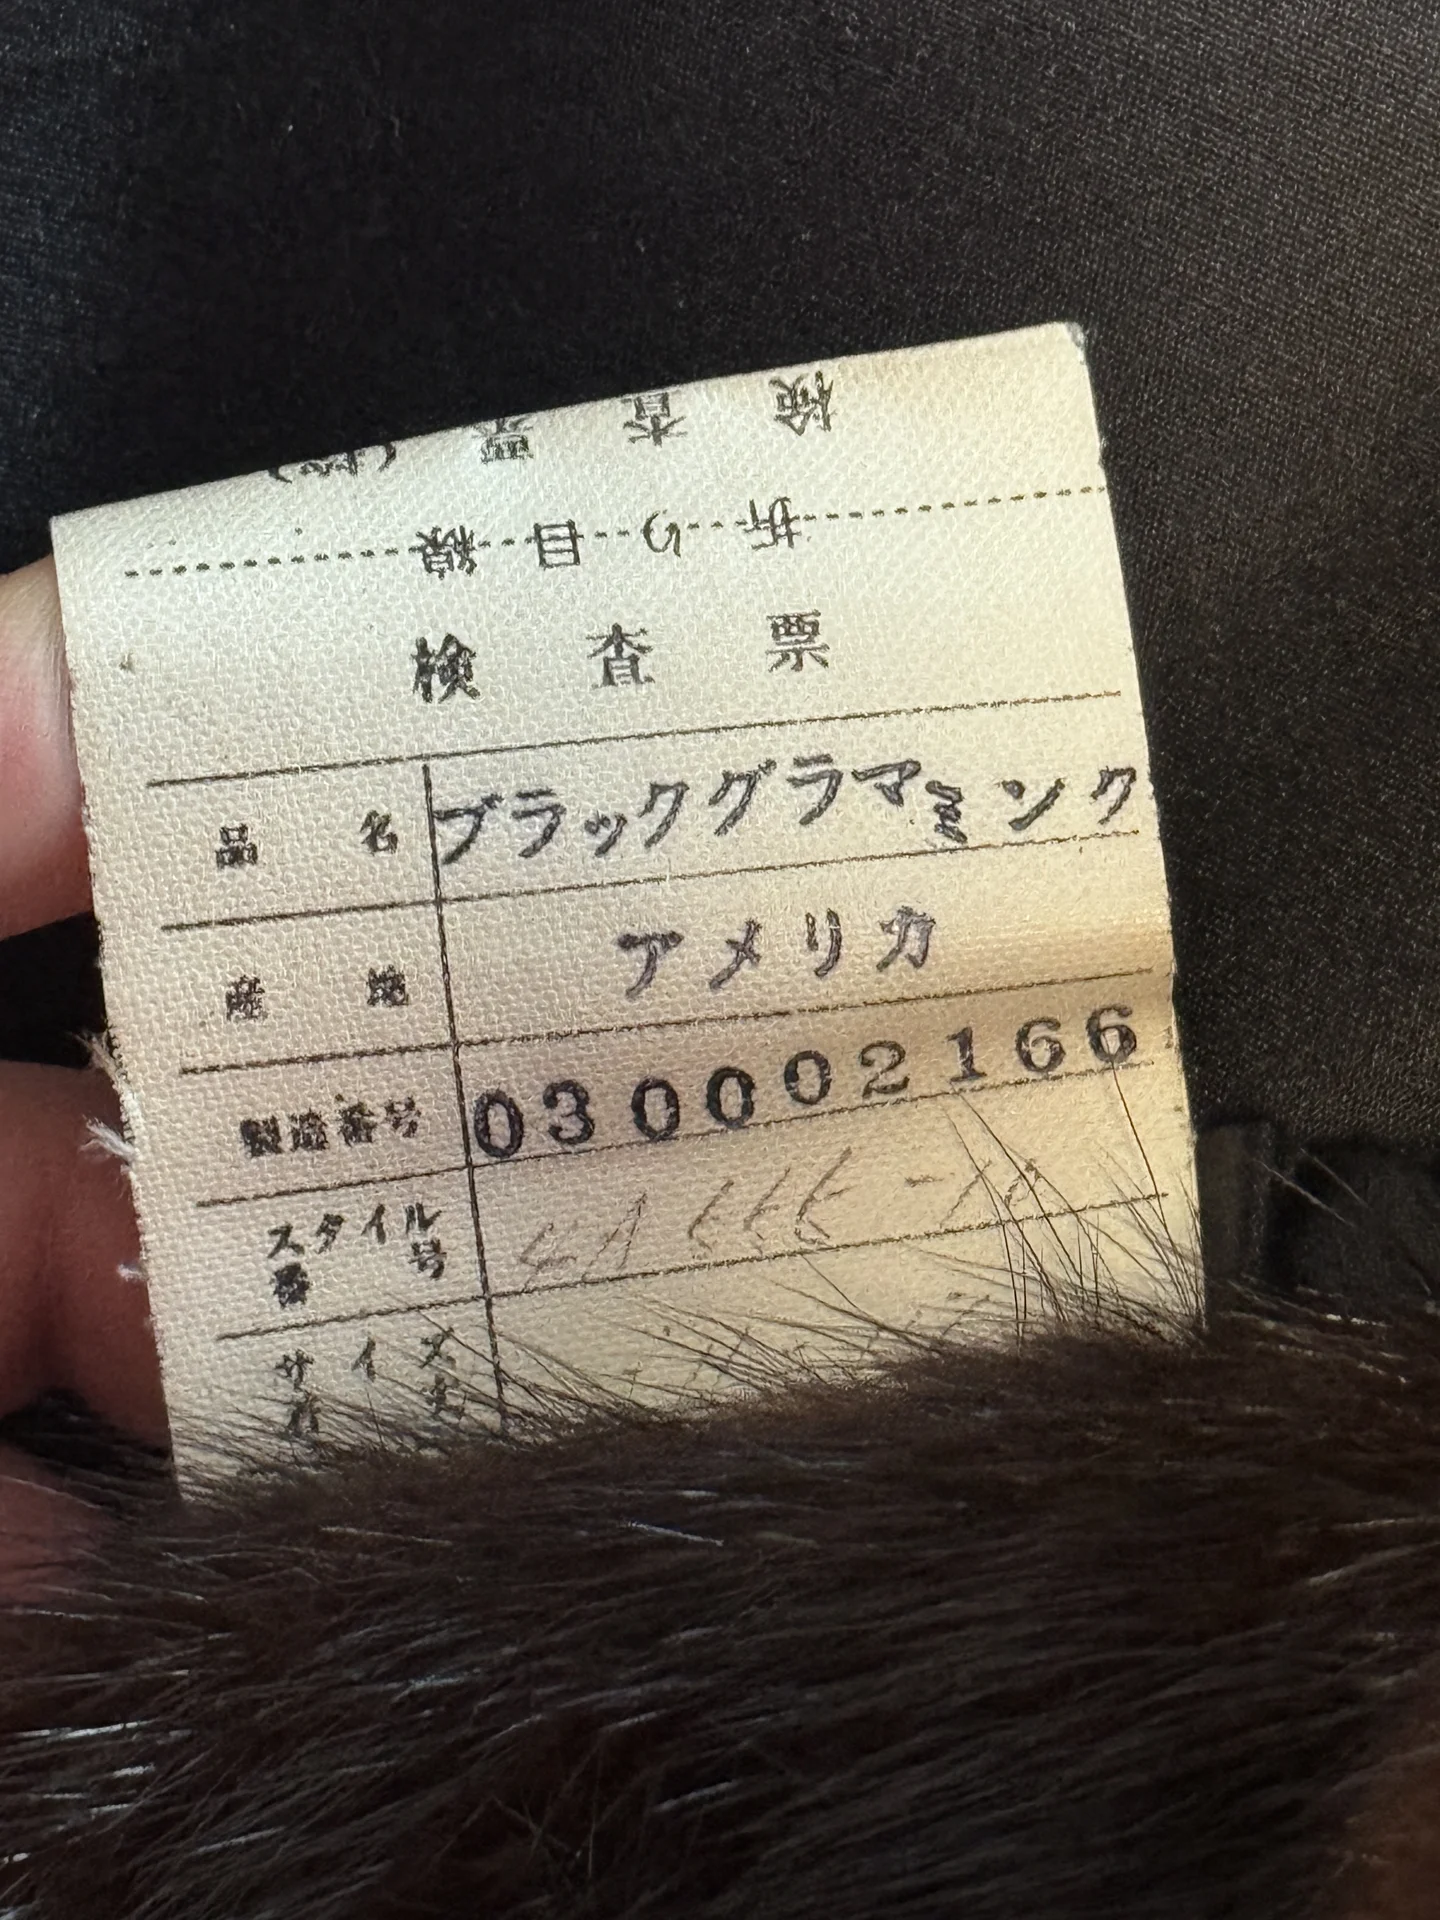 検査票(控)
折り目線
検査票
品名 ブラックグラマミンク
産地 アメリカ
製造番号 030002166
スタイル番号
サイズ